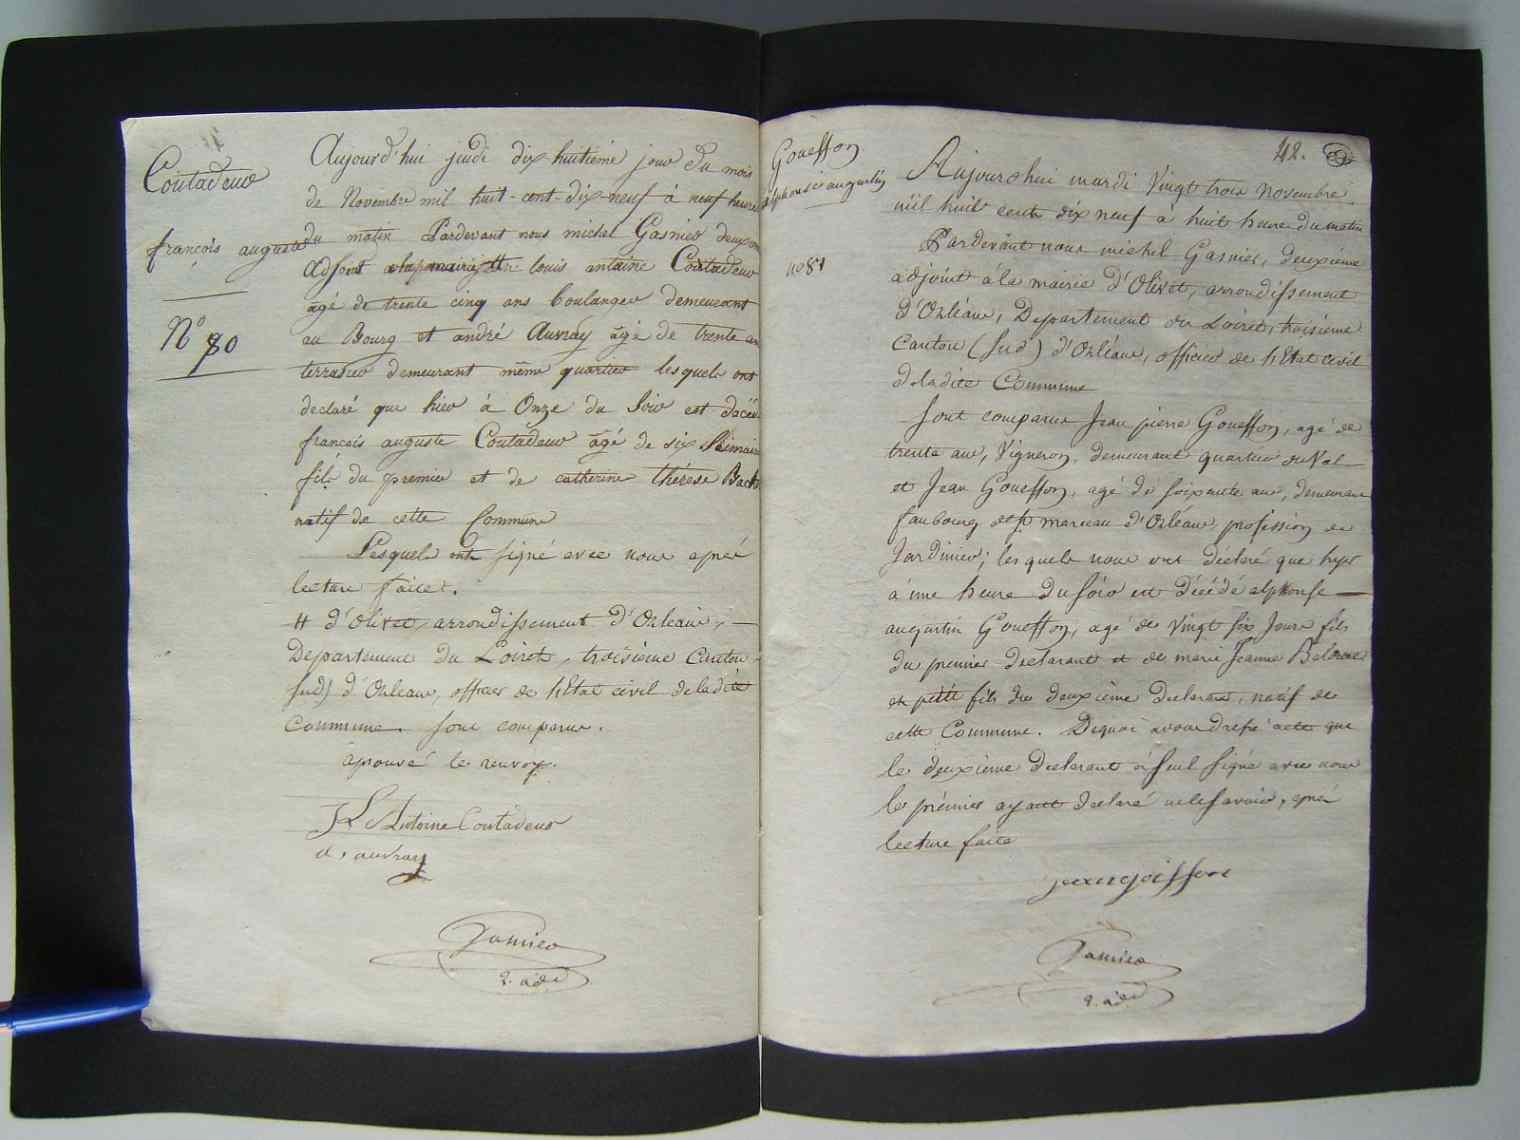 Coutadeur
françois auguste
N° 80
Aujourd'hui jeudi dix-huitième jour du mois
de Novembre mil huit-cent-dix-neuf à neuf heure
du matin Pardevant nous michel Gasnier deuxième
adjoint a la mairie # louis antoine Coutadeur
âgé de trente cinq ans boulanger demeurant
au Bourg et andré Auvray âgé de trente an
terrasier demeurant même quartier lesquels ont
declaré que hier à Onze du soir est décédé
françois auguste Coutadeur âgé de six Semaine
fils du premier et de catherine thérèse
natif de cette Commune
Lesquels ont signé avec nous aprèé
lecture faite.
# d'Olivet, arrondissement d'Orleans,
Departement du Loiret, troisième Canton
sud) d'Orleans, officier de l'Etat civil de ladite
Commune. sont comparus.
aprouvé le renvoy.
L Antoine Coutadeur
a. auvray
Gasnier
2. adj
Goueffon
alphonse augustin
n° 81
42.
Aujourdhui mardi vingt trois novembre
mil huit cent dix neuf à huit heure du matin
Pardevant nous michel Gasnier, deuxième
adjoint à la mairie d'Olivet, arrondissement
d'Orléans, Departement du Loiret, troisième
Canton (sud) d'Orléans, officier de l'Etat civil
de ladite Commune
Sont comparus Jean pierre Goueffon, agé de
trente ans, Vigneron, demeurant quartier du Val
et Jean Goueffon, agé de soixante ans, demeurant
faubourg st marceau d'Orléans, profession de
Jardinier; lesquels nous ont déclaré que hyer
à une heure du soir est décédé alphonse
augustin Goueffon, agé de vingt six Jours fils
du premier declarant et de marie Jeanne
et petit fils du deuxième declarant, natif de
cette Commune. Dequoi avons dressé acte que
le deuxième declarant à seul signé avec nous
le prémier ayant declaré ne le savoir, aprèé
lecture faite
jean goiffon
Gasnier
2. adj